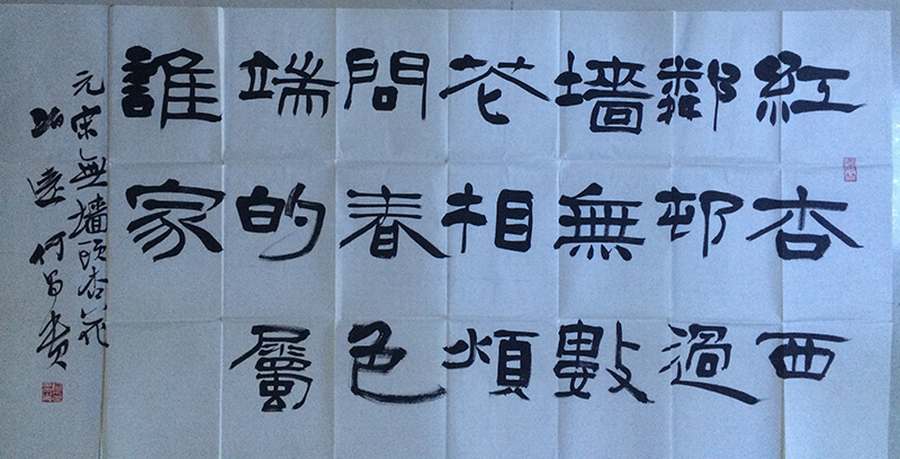 紅杏西
鄰邨過
墙無數
花相煩
問春色
端的屬
誰家
元宋無墙頭杏花
何昌贵